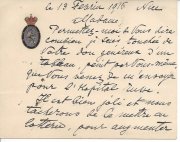 le 13 Février 1916 Nice
Madame,
Permettez-moi de Vous dire
combien je suis touchée de
Votre don généreux d'un
tableau, peint par Vous-même
que Vous venez de m'envoyer
pour l'Hôpital
Il est bien joli et nous
tâcherons de le mettre en
loterie, pour augmenter